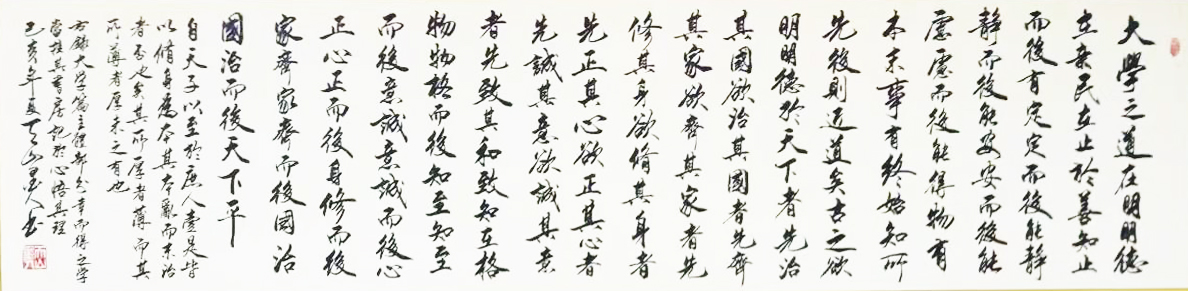 大學之道在明明德
在亲民在止於善知止
而後有定定而後能静
静而後能安安而後能
慮慮而後能得物有
本末事有終始知所
先後則近道矣古之欲
明明德於天下者先治
其國欲治其國者先齊
其家欲齊其家者先
修其身欲脩其身者
先正其心欲正其心者
先誠其意欲誠其意
者先致其知致知在格
物物格而後知至知至
而後意誠意誠而後心
正心正而後身修而後
家齊家齊而後國治
國治而後天下平
自天子以至於庶人壹是皆
以脩身為本其本亂而末治
者否也矣其所厚者薄而其
所薄者厚未之有也
大學篇主體部分幸而得之學
當挂其書房記於心悟其理
己亥年夏天山墨人書